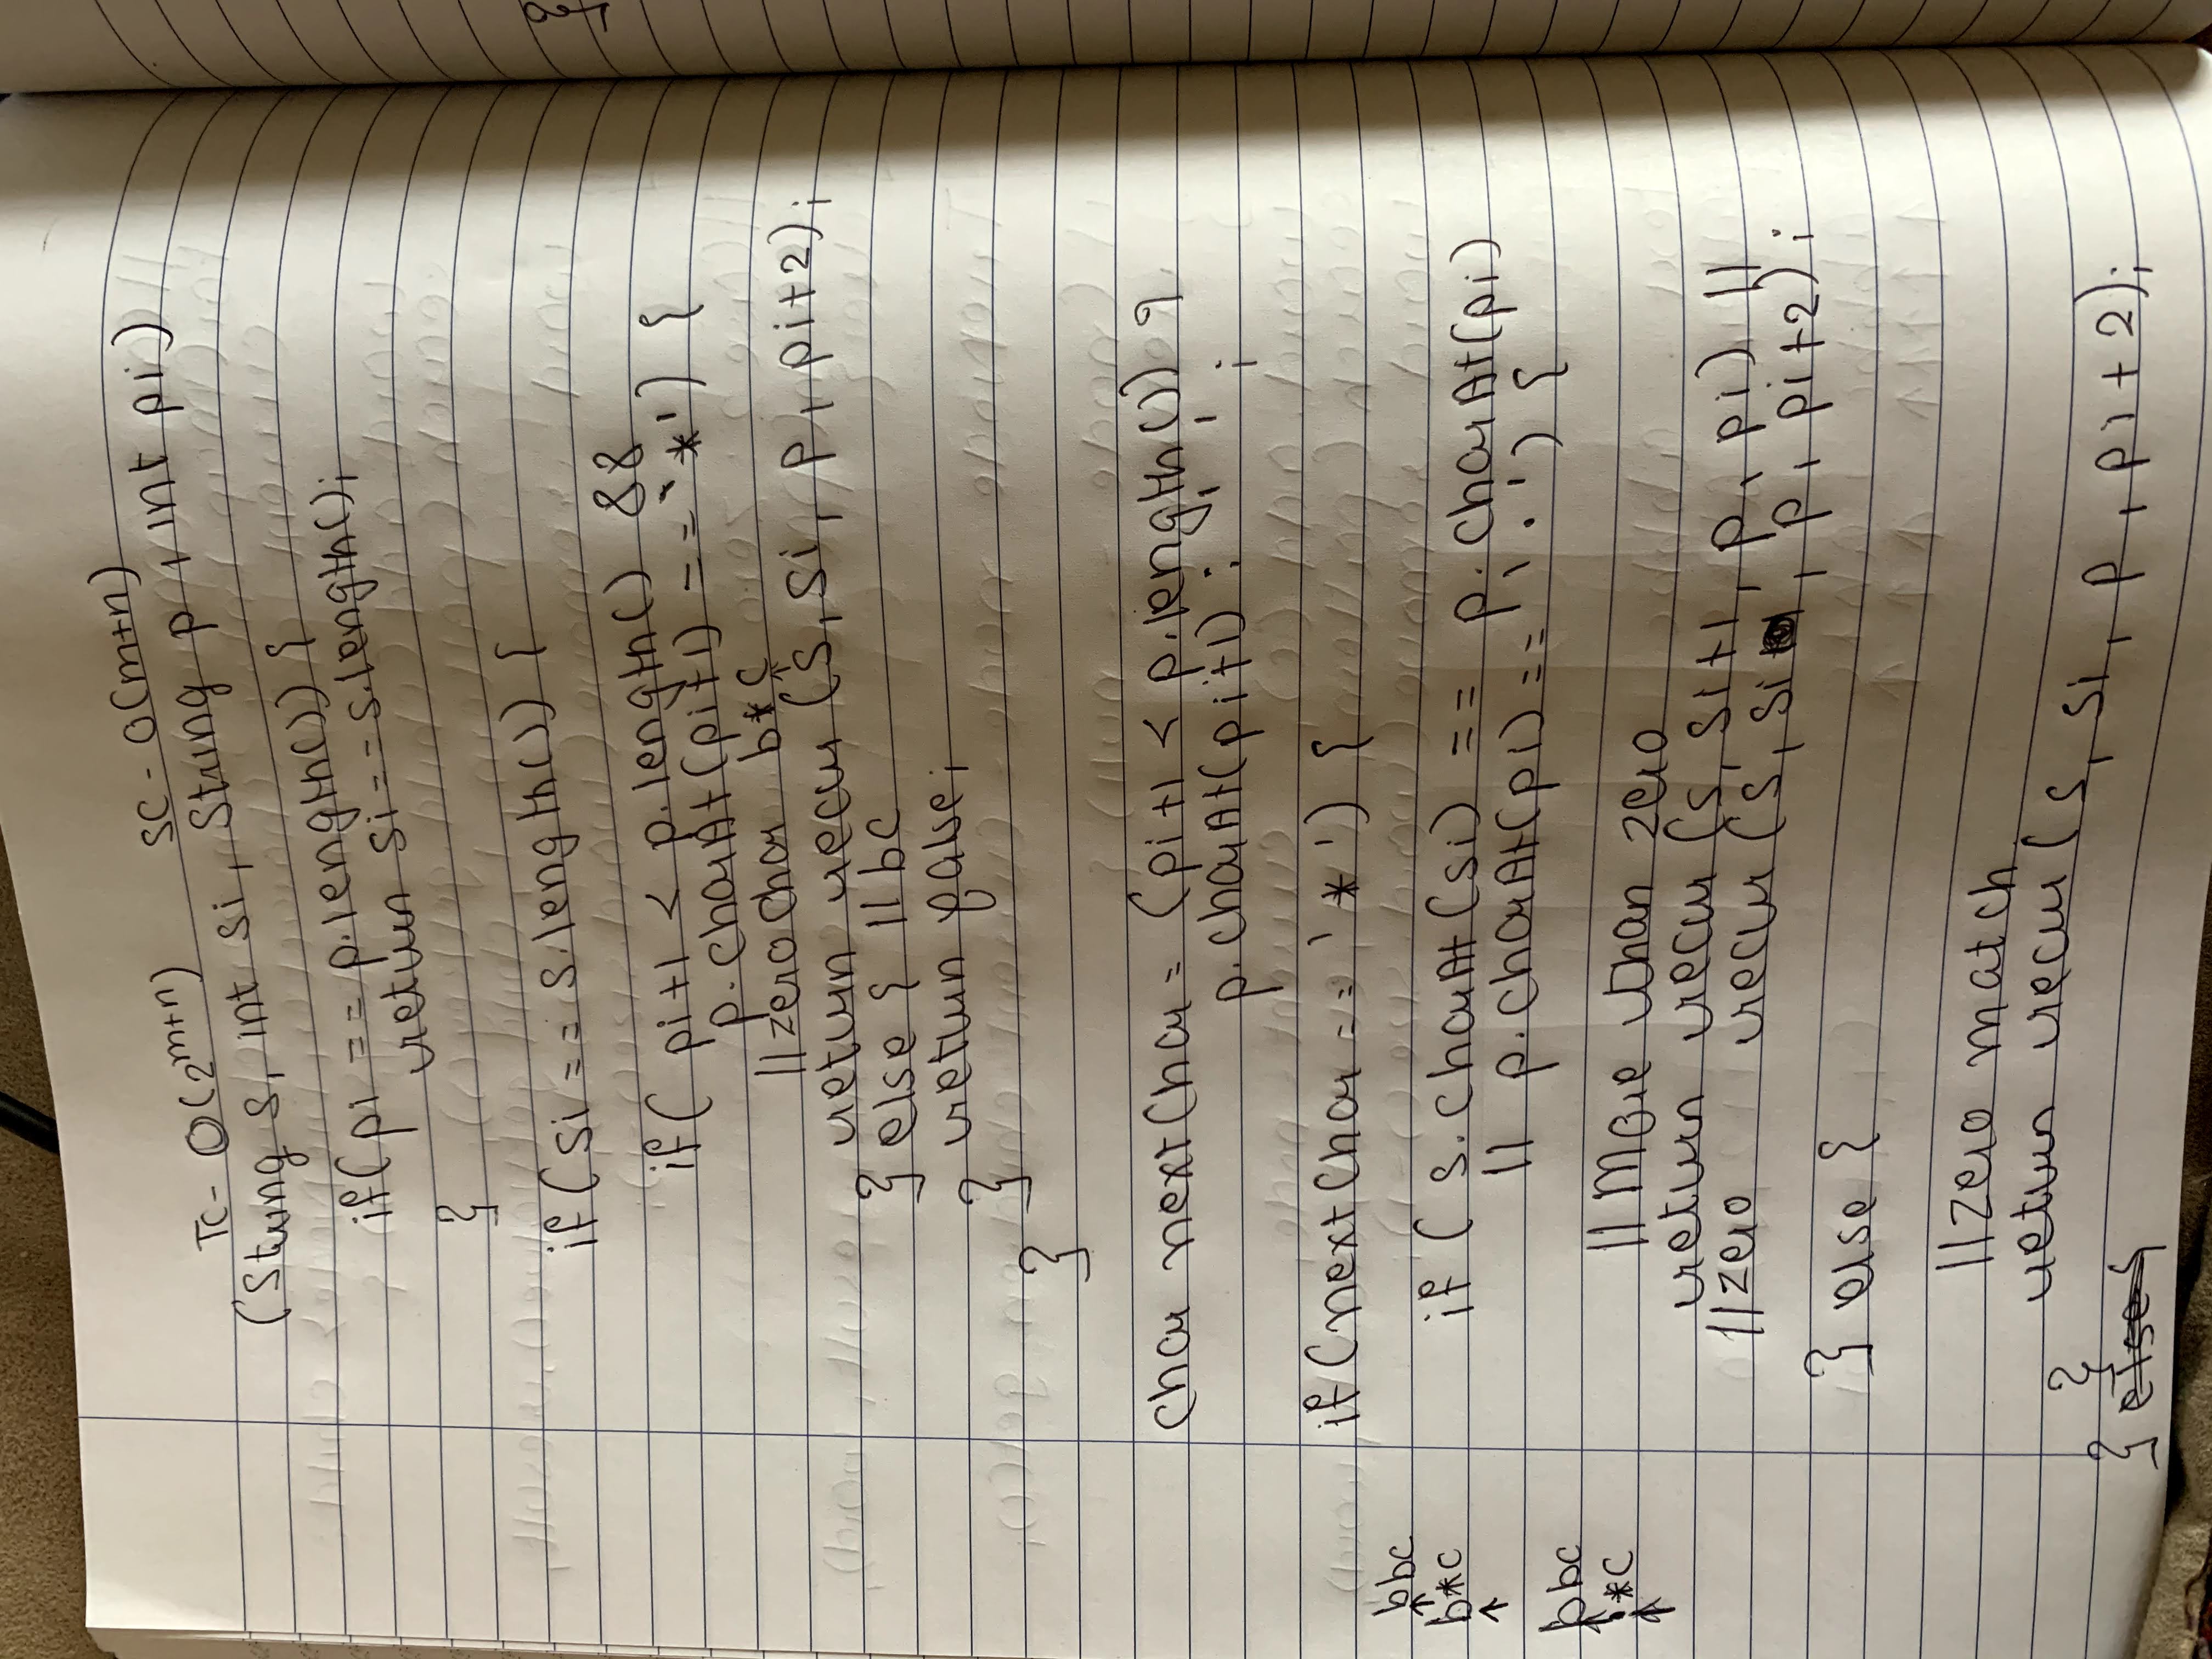 TC - O(2^m+n) SC - O(m+n)
(String s, int si, String p, int pi)
if(pi == p.length()) {
return si == s.length();
}
if(si == s.length()) {
if( pi+1 < p.length() &&
p.charAt(pi+1) == '*') {
//zero char b*c
↑
return recur (s, si, p, pi+2);
} else { // bc
return false;
}
}
char nextChar = (pi+1 < p.length()) ?
p.charAt(pi+1) : ' ' ;
if(nextChar == '*') {
bbc
↑
b*c
↑
if ( s.charAt(si) == p.charAt(pi)
|| p.charAt(pi) == '.') {
bbc
↑
.*c
↑
// More than zero
return recur (s, si+1, p, pi) ||
//zero recur (s, si, p, pi+2);
} else {
//zero match
return recur (s, si, p, pi+2);
}
} else {